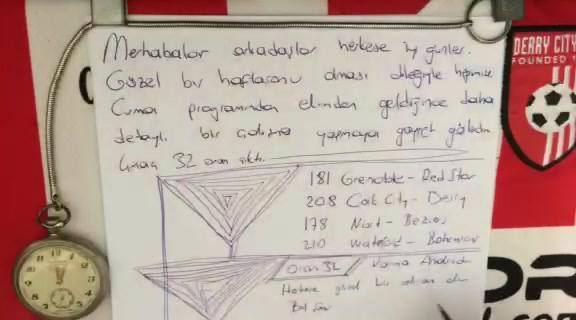 Merhabalar arkadaşlar herkese iyi günler.
Güzel bir haftasonu olması dileğiyle hepinize
Cuma programından elimden geldiğince daha
detaylı bir çalışma yapmaya gayret gösterdim
32 oran çıktı.
181 Grenoble - Red Star
208 Cork City - Derry
178 Niort - Beziers
210 Waterford - Bohemian
Oran 32
Herkese güzel bir olsun
Bol
DERRY CITY
FOUNDED